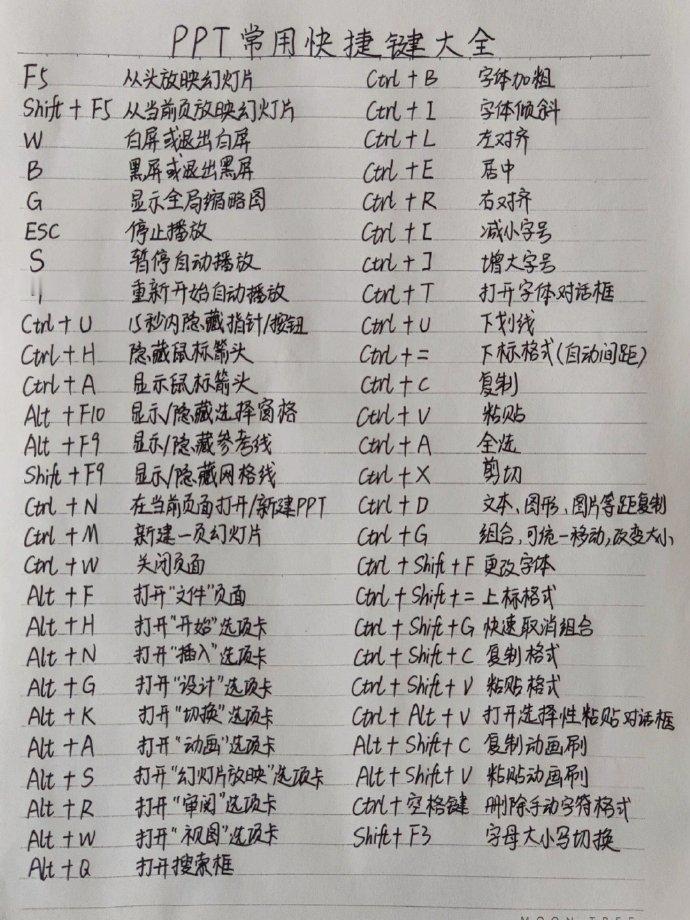 PPT常用快捷键大全
F5 从头放映幻灯片
Shift + F5 从当前页放映幻灯片
W 白屏或退出白屏
B 黑屏或退出黑屏
G 显示全局缩略图
ESC 停止播放
S 暂停自动播放
重新开始自动播放
Ctrl + U 15秒内隐藏指针/按钮
Ctrl + H 隐藏鼠标箭头
Ctrl + A 显示鼠标箭头
Alt + F10 显示/隐藏选择窗格
Alt + F9 显示/隐藏参考线
Shift + F9 显示/隐藏网格线
Ctrl + N 在当前页面打开/新建PPT
Ctrl + M 新建一页幻灯片
Ctrl + W 关闭页面
Alt + F 打开“文件”页面
Alt + H 打开“开始”选项卡
Alt + N 打开“插入”选项卡
Alt + G 打开“设计”选项卡
Alt + K 打开“切换”选项卡
Alt + A 打开“动画”选项卡
Alt + S 打开“幻灯片放映”选项卡
Alt + R 打开“审阅”选项卡
Alt + W 打开“视图”选项卡
Alt + Q 打开搜索框
Ctrl + B 字体加粗
Ctrl + I 字体倾斜
Ctrl + L 左对齐
Ctrl + E 居中
Ctrl + R 右对齐
Ctrl + [ 减小字号
Ctrl + ] 增大字号
Ctrl + T 打开字体对话框
Ctrl + U 下划线
Ctrl + = 下标格式(自动间距)
Ctrl + C 复制
Ctrl + V 粘贴
Ctrl + A 全选
Ctrl + X 剪切
Ctrl + D 文本、图形、图片等距复制
Ctrl + G 组合,可统一移动,改变大小
Ctrl + Shift + F 更改字体
Ctrl + Shift + = 上标格式
Ctrl + Shift + G 快速取消组合
Ctrl + Shift + C 复制格式
Ctrl + Shift + V 粘贴格式
Ctrl + Alt + V 打开选择性粘贴对话框
Alt + Shift + C 复制动画刷
Alt + Shift + V 粘贴动画刷
Ctrl + 空格键 删除手动字符格式
Shift + F3 字母大小写切换